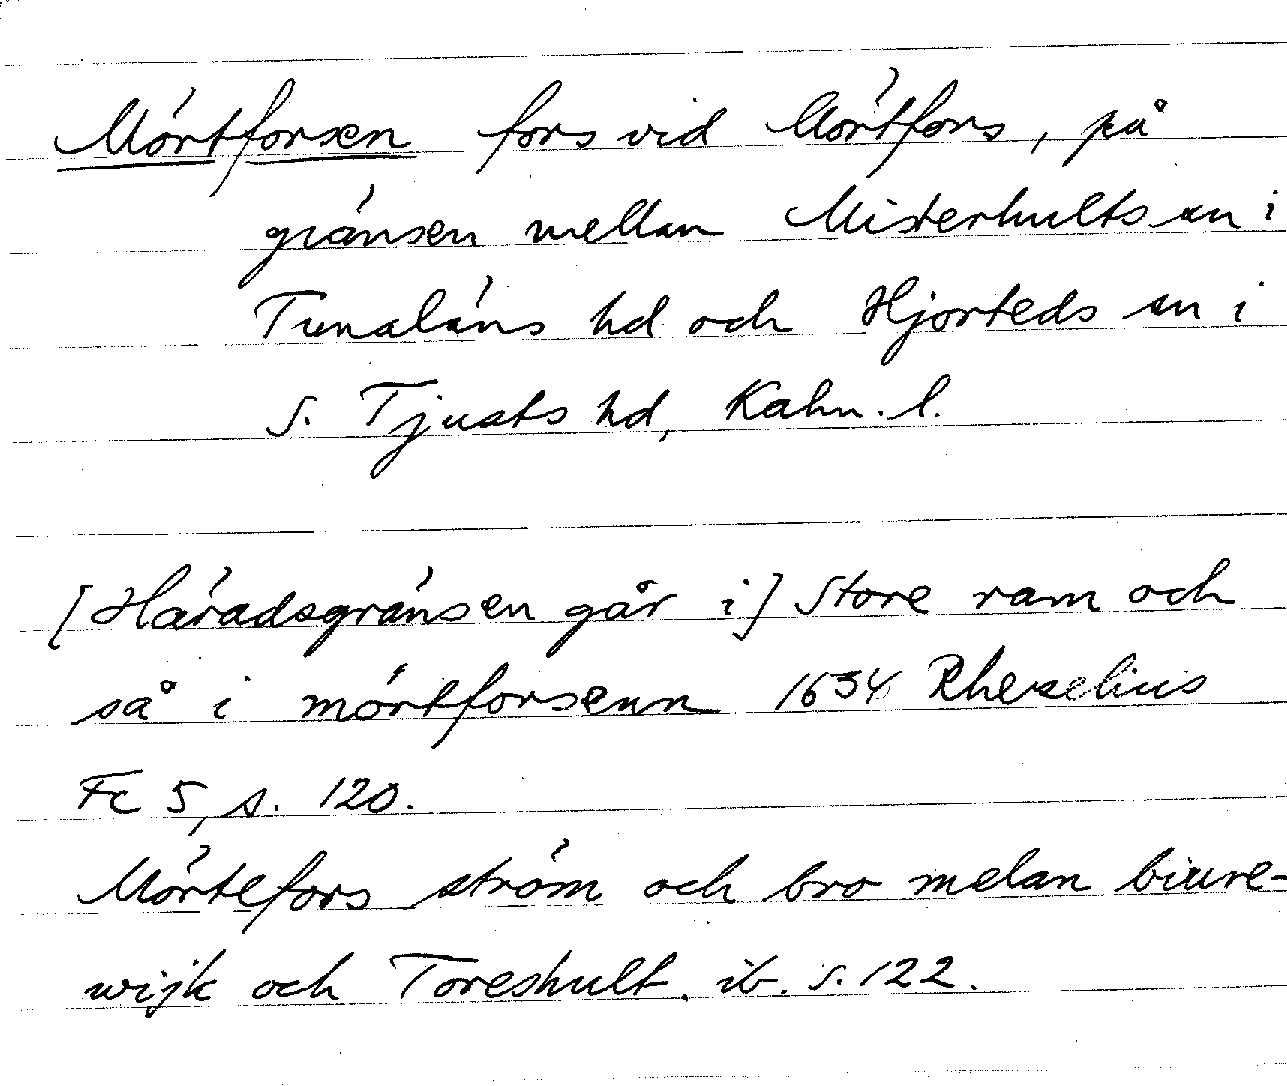 Mörtforsen fors vid Mörtfors, på
gränsen mellan Misterhults sn i
Tunaläns hd och Hjorteds sn i
S. Tjusts hd, Kalm. l.
[Häradsgränsen går i] Store ram och
så i mörtforsenn 1634 Rhezelius
Fc 5, s. 120.
Mörtefors ström och bro melan biure-
wijk och Toreshult. ib. s. 122.